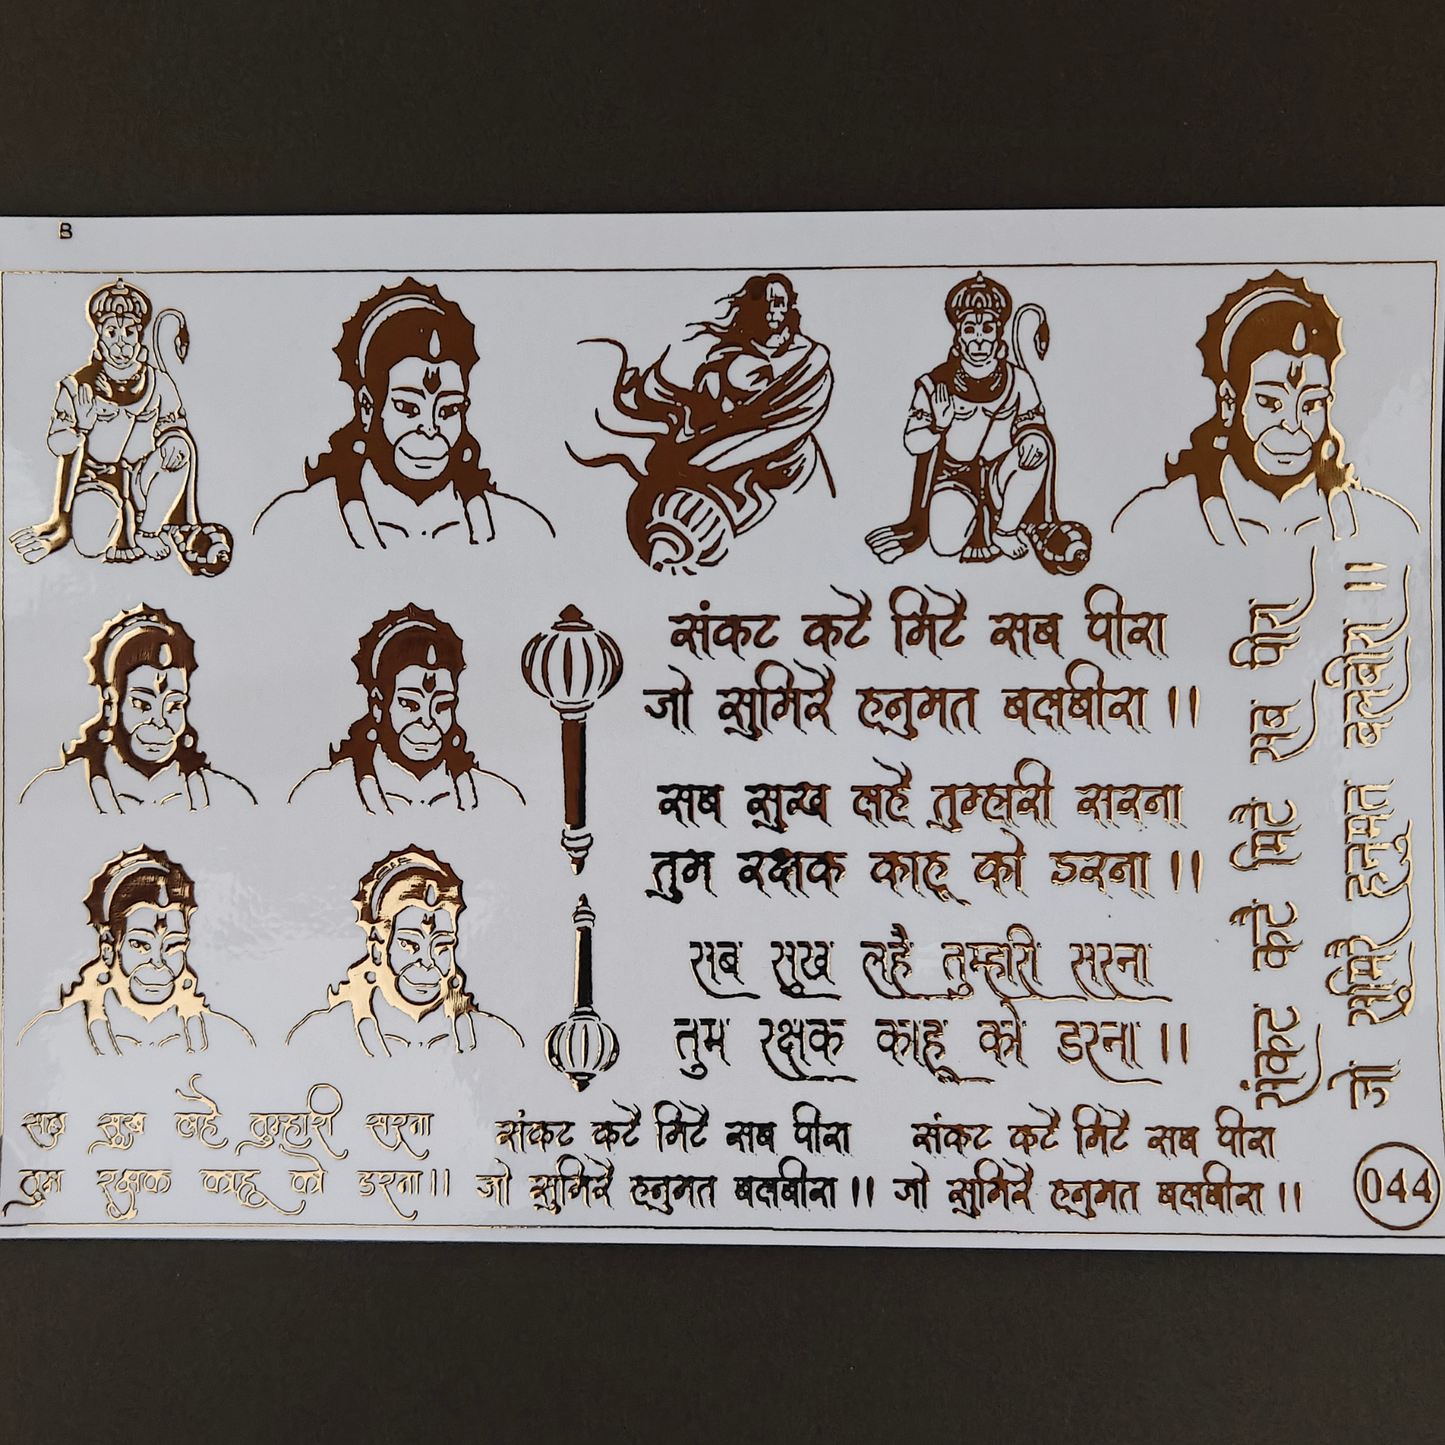 B
संकट कटै मिटै सब पीरा
जो सुमिरै हनुमत बलबीरा ।।
सब सुख लहै तुम्हारी सरना
तुम रक्षक काहू को डरना ।।
सब सुख लहै तुम्हारी सरना
तुम रक्षक काहू को डरना ।।
संकट कटै मिटै सब पीरा
जो सुमिरै हनुमत बलबीरा ।।
सब सुख लहै तुम्हारी सरना
तुम रक्षक काहू को डरना ।।
संकट कटै मिटै सब पीरा
जो सुमिरै हनुमत बलबीरा ।।
संकट कटै मिटै सब पीरा
जो सुमिरै हनुमत बलबीरा ।।
044